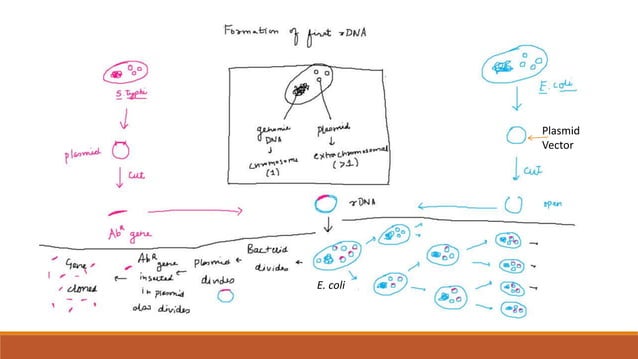 Formation of first rDNA
S. Typhi
plasmid
cut
Abᴿ gene
genomic
DNA
↓
chromosome
(1)
plasmid
↓
extrachromosomal
(>1)
E. coli
Plasmid
Vector
cut
open
rDNA
E. coli
Bacteria
divides
Plasmid
divides
Abᴿ
gene
inserted
in plasmid
also divides
Gene
cloned